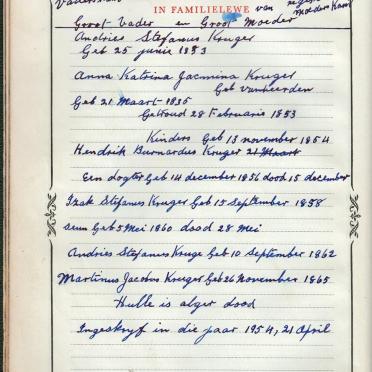 IN FAMILIELEWE van
Groot Vader en Groot Moeder
Andries Stefanus Kruger
Geb 25 junie 1853
Anna Katrina Jacmina Kruger
Geb van heerden
Geb 21 Maart 1835
Getroud 28 Februarie 1853
Kinders Geb 13 november 1854
Hendrik Burnardus Kruger 21 Maart
Een dogter Geb 14 december 1856 dood 15 december
Izak Stefanus Kruger Geb 15 September 1858
seun Geb 5 Mei 1860 dood 28 Mei
Andries Stefanus Kruge Geb 10 September 1862
Martinus Jacobus Kruger Geb 26 November 1865
Hulle is algar dood
Ingeskryf in die jaar 1954, 21 April